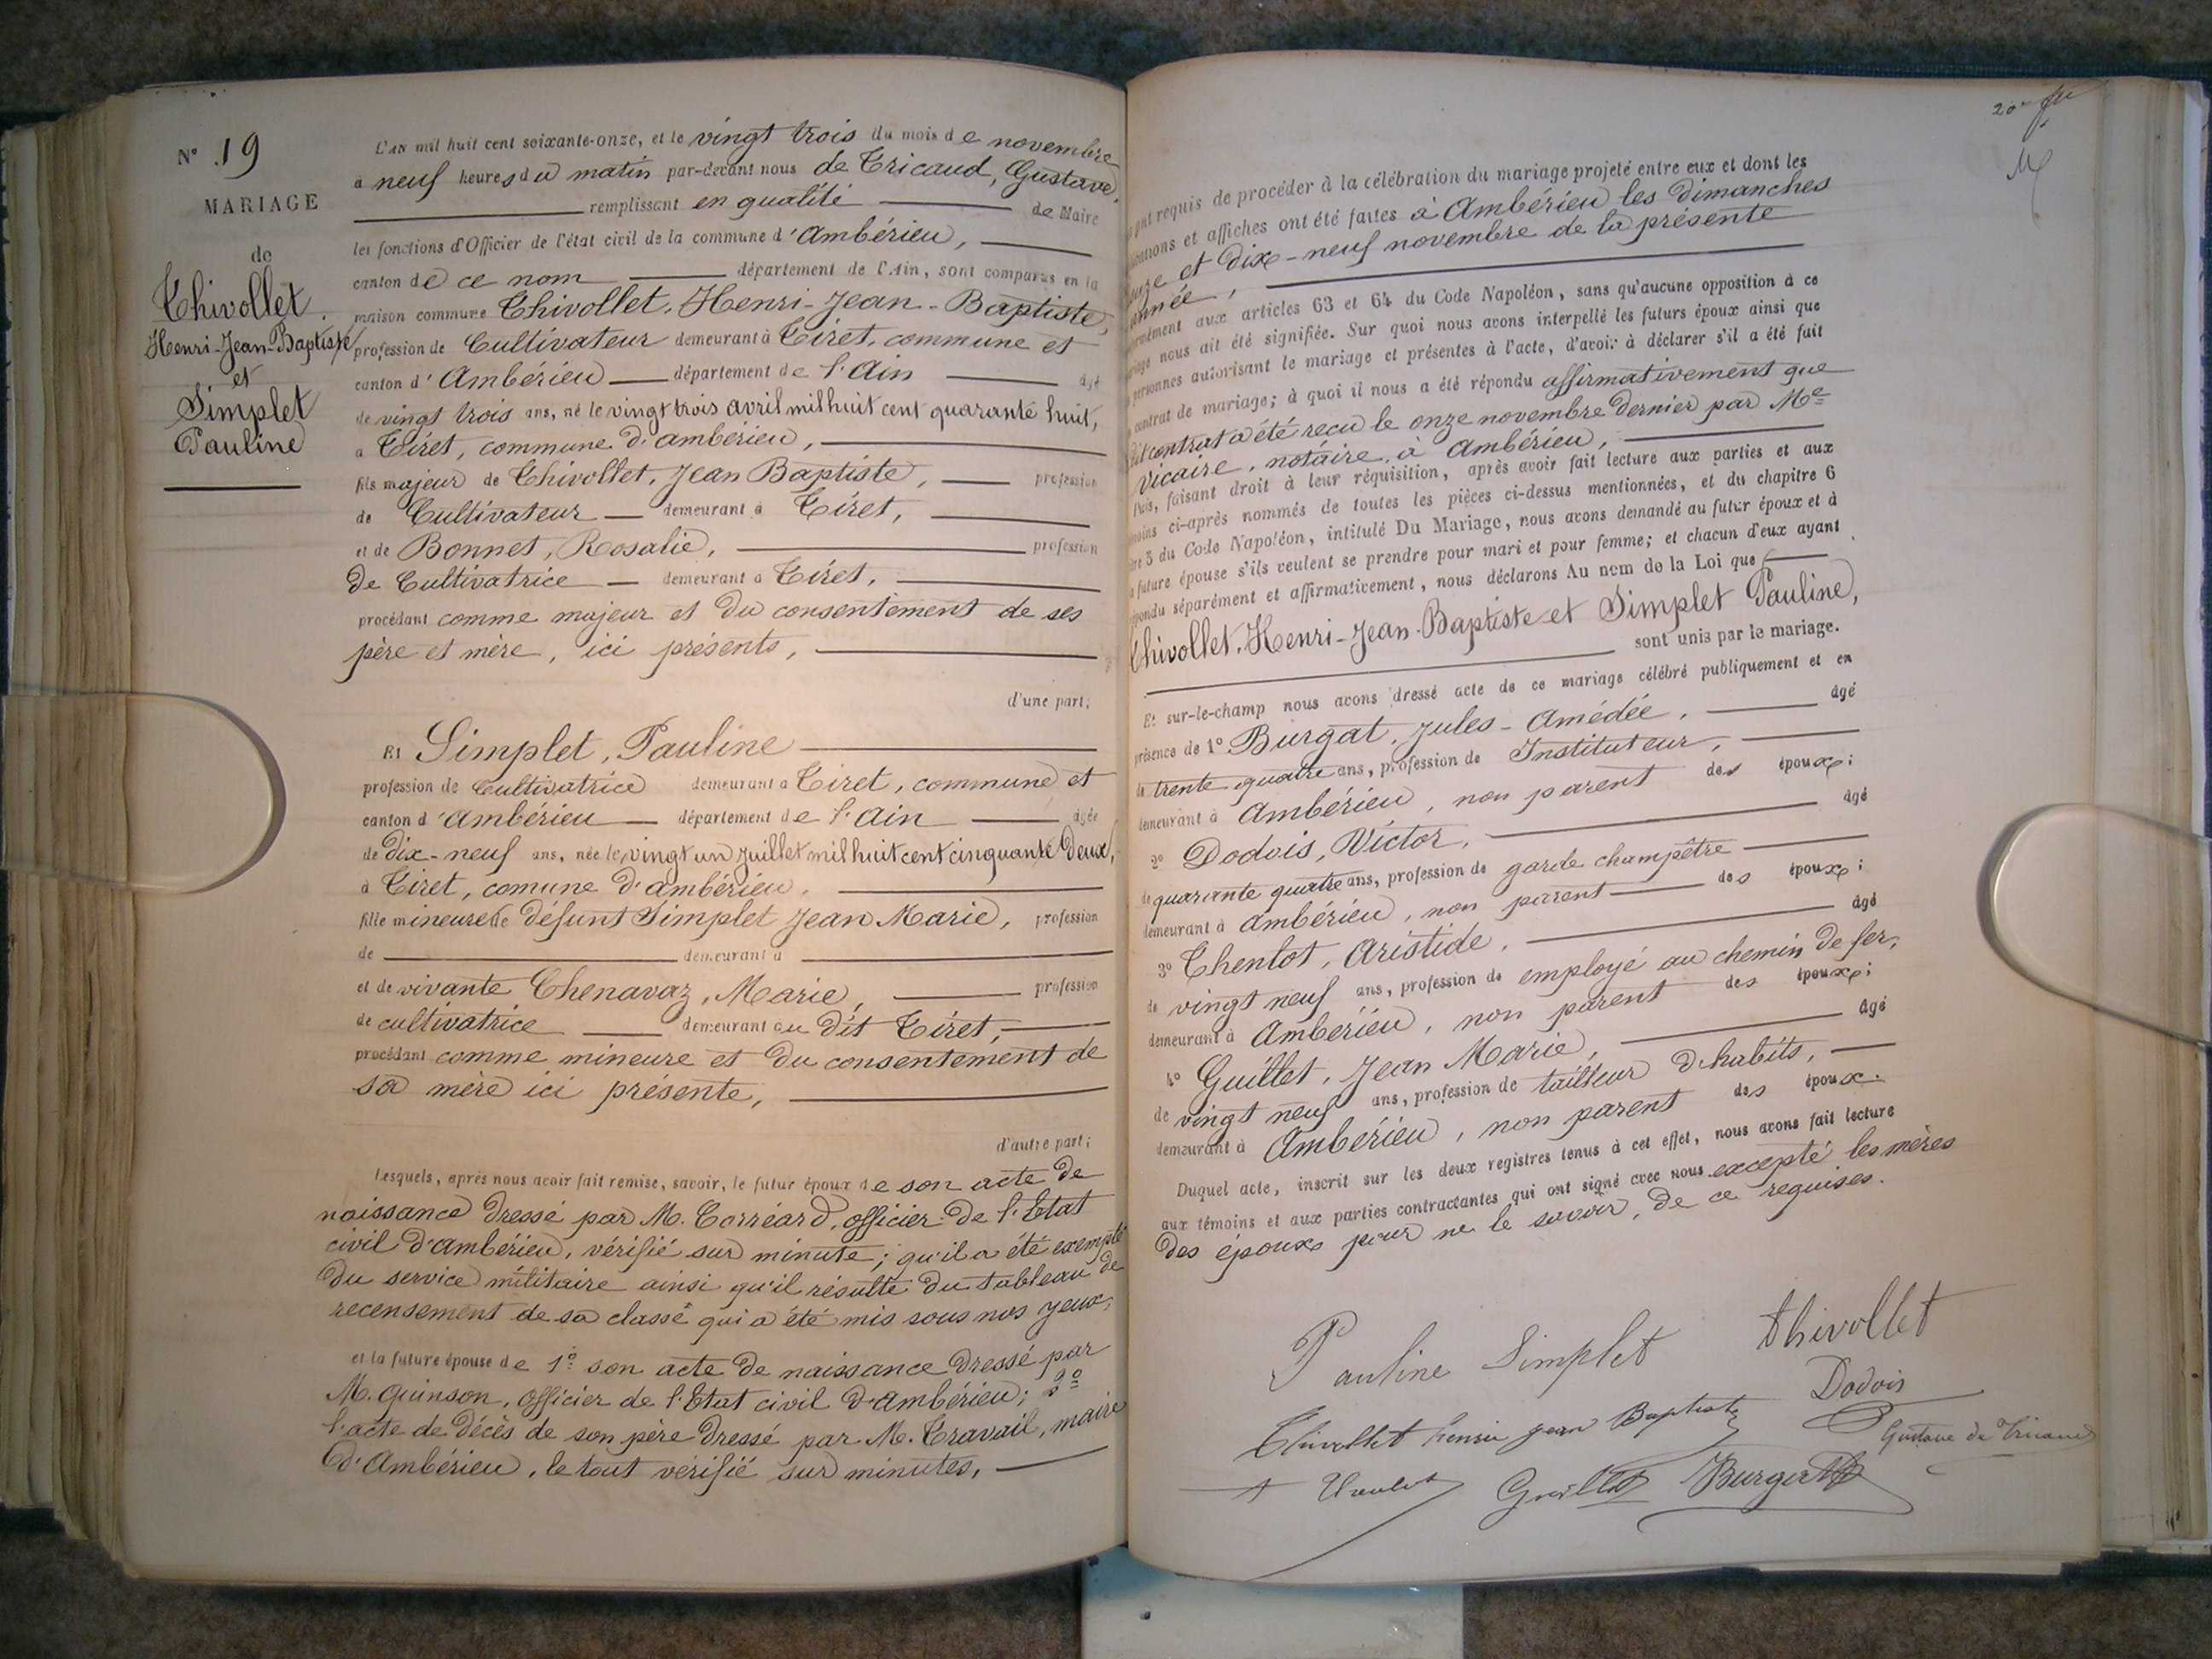 N° 19
MARIAGE
de
Thivollet
Henri-Jean-Baptiste
et
Simplet
Pauline
L'an mil huit cent soixante-onze, et le vingt trois du mois de novembre
à neuf heures du matin par-devant nous de Tricaud, Gustave,
remplissant en qualité de Maire
les fonctions d'Officier de l'état civil de la commune d'Ambérieu,
canton de ce nom département de l'Ain, sont comparus en la
maison commune Thivollet, Henri-Jean-Baptiste,
profession de Cultivateur demeurant à Tiret, commune et
canton d'Ambérieu département de l'Ain âgé
de vingt trois ans, né le vingt trois avril mil huit cent quarante huit,
à Tiret, commune d'ambérieu,
fils majeur de Thivollet, Jean Baptiste, profession
de Cultivateur demeurant à Tiret,
et de Bonnet, Rosalie, profession
de Cultivatrice demeurant à Tiret,
procédant comme majeur et du consentement de ses
père et mère, ici présents,
d'une part;
Et Simplet, Pauline
profession de Cultivatrice demeurant à Tiret, commune et
canton d'Ambérieu département de l'Ain âgée
de dix-neuf ans, née le vingt un Juillet mil huit cent cinquante deux,
à Tiret, comune d'ambérieu,
fille mineure de défunt Simplet Jean Marie, profession
de demeurant à
et de vivante Chenavaz, Marie, profession
de cultivatrice demeurant au dit Tiret,
procédant comme mineure et du consentement de
sa mère ici présente,
d'autre part;
Lesquels, après nous avoir fait remise, savoir, le futur époux de son acte de
naissance dressé par M. Corréard, officier de l'Etat
civil d'ambérieu, vérifié sur minute; qu'il a été exempté
du service militaire ainsi qu'il résulte du tableau de
recensement de sa classe qui a été mis sous nos yeux,
et la future épouse de 1° son acte de naissance dressé par
M. Quinson, officier de l'Etat civil d'ambérieu; 2°
l'acte de décès de son père dressé par M. Travail, maire
d'Ambérieu, le tout vérifié sur minutes,
20e
ont requis de procéder à la célébration du mariage projeté entre eux et dont les
et affiches ont été faites à Ambérieu les dimanches
et dix-neuf novembre de la présente
année,
aux articles 63 et 64 du Code Napoléon, sans qu'aucune opposition à ce
nous ait été signifiée. Sur quoi nous avons interpellé les futurs époux ainsi que
personnes autorisant le mariage et présentes à l'acte, d'avoir à déclarer s'il a été fait
contrat de mariage; à quoi il nous a été répondu affirmativement que
contrat a été reçu le onze novembre dernier par Me
Vicaire, notaire, à Ambérieu,
Puis, faisant droit à leur réquisition, après avoir fait lecture aux parties et aux
ci-après nommés de toutes les pièces ci-dessus mentionnées, et du chapitre 6
5 du Code Napoléon, intitulé Du Mariage, nous avons demandé au futur époux et à
future épouse s'ils veulent se prendre pour mari et pour femme; et chacun d'eux ayant
séparément et affirmativement, nous déclarons Au nom de la Loi que
Thivollet, Henri-Jean-Baptiste et Simplet Pauline,
sont unis par le mariage.
Et sur-le-champ nous avons dressé acte de ce mariage célébré publiquement et en
présence de 1° Burgat, Jules-Amédée, âgé
de trente quatre ans, profession de Instituteur,
demeurant à Ambérieu, non parent des époux;
2° Dodois, Victor, âgé
de quarante quatre ans, profession de garde champêtre
demeurant à ambérieu, non parent des époux;
3° Thentot, Aristide, âgé
de vingt neuf ans, profession de employé au chemin de fer,
demeurant à Ambérieu, non parent des époux;
4° Guillet, Jean Marie, âgé
de vingt neuf ans, profession de tailleur d'habits,
demeurant à Ambérieu, non parent des époux.
Duquel acte, inscrit sur les deux registres tenus à cet effet, nous avons fait lecture
aux témoins et aux parties contractantes qui ont signé avec nous excepté les mères
des époux pour ne le savoir, de ce requises.
Pauline Simplet thivollet
Dodois
Thivollet henri jean Baptiste
Gustave de Tricaud
Guillet Burgat